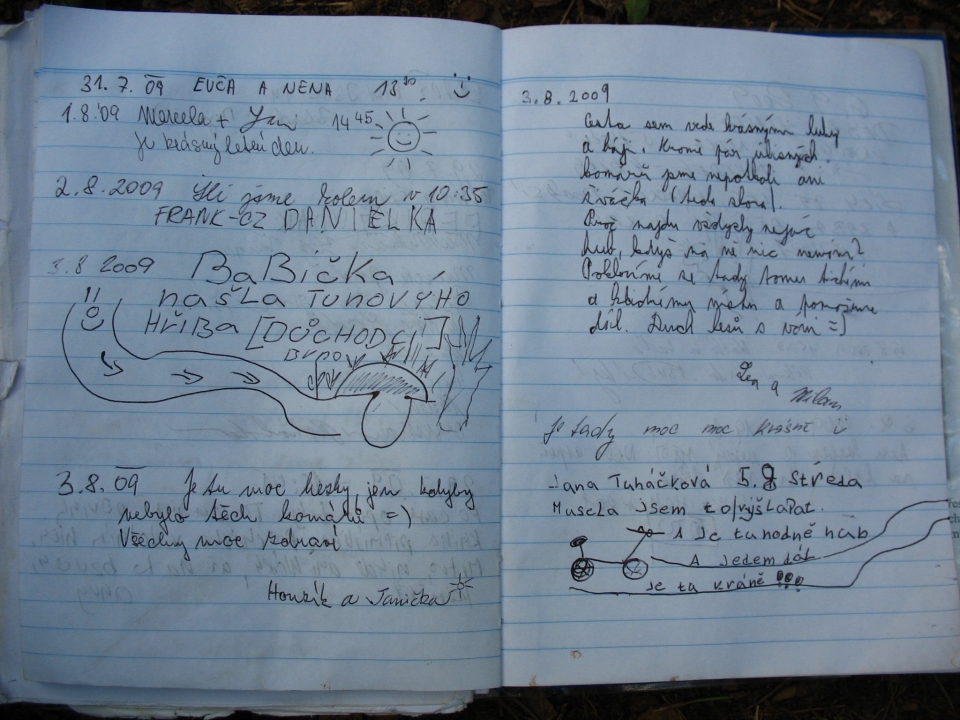 31. 7. 09 EVČA A NENA 13³⁰
1.8.'09 Marcela + Jan 14⁴⁵
Je krásný letní den.
2.8.2009 Šli jsme kolem v 10:35
FRANK-CZ DANIELKA
3.8 2009 BaBička
našla Tunovýho
HřiBa [DŮCHODCI]
3.8. 09 Je tu moc hezky, jen kdyby
nebylo těch komárů =)
Všechny moc zdraví
Honzík a Janička
3.8.2009
Cesta sem vede krásnými luhy
a háji. Kromě pár
komárů jsme nepotkali ani
(teda skoro).
Proč najdu vždycky nejvíc
hub, když na ně nic nemám?
Pokloníme se tady tomu tichému
a místu a pomažeme
dál. Duch lesů s vámi =)
a Milan
Je tady moc moc krásně
Jana Tuháčková 5.8 Středa
Musela jsem to vyšlapat.
A Je tu hodně hub
A Jedem dál
Je ta kráně !!!